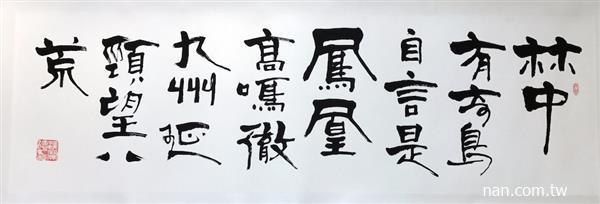 林中
有奇鳥
自言是
鳳凰
高鳴徹
九州延
頸望八
荒
nan.com.tw